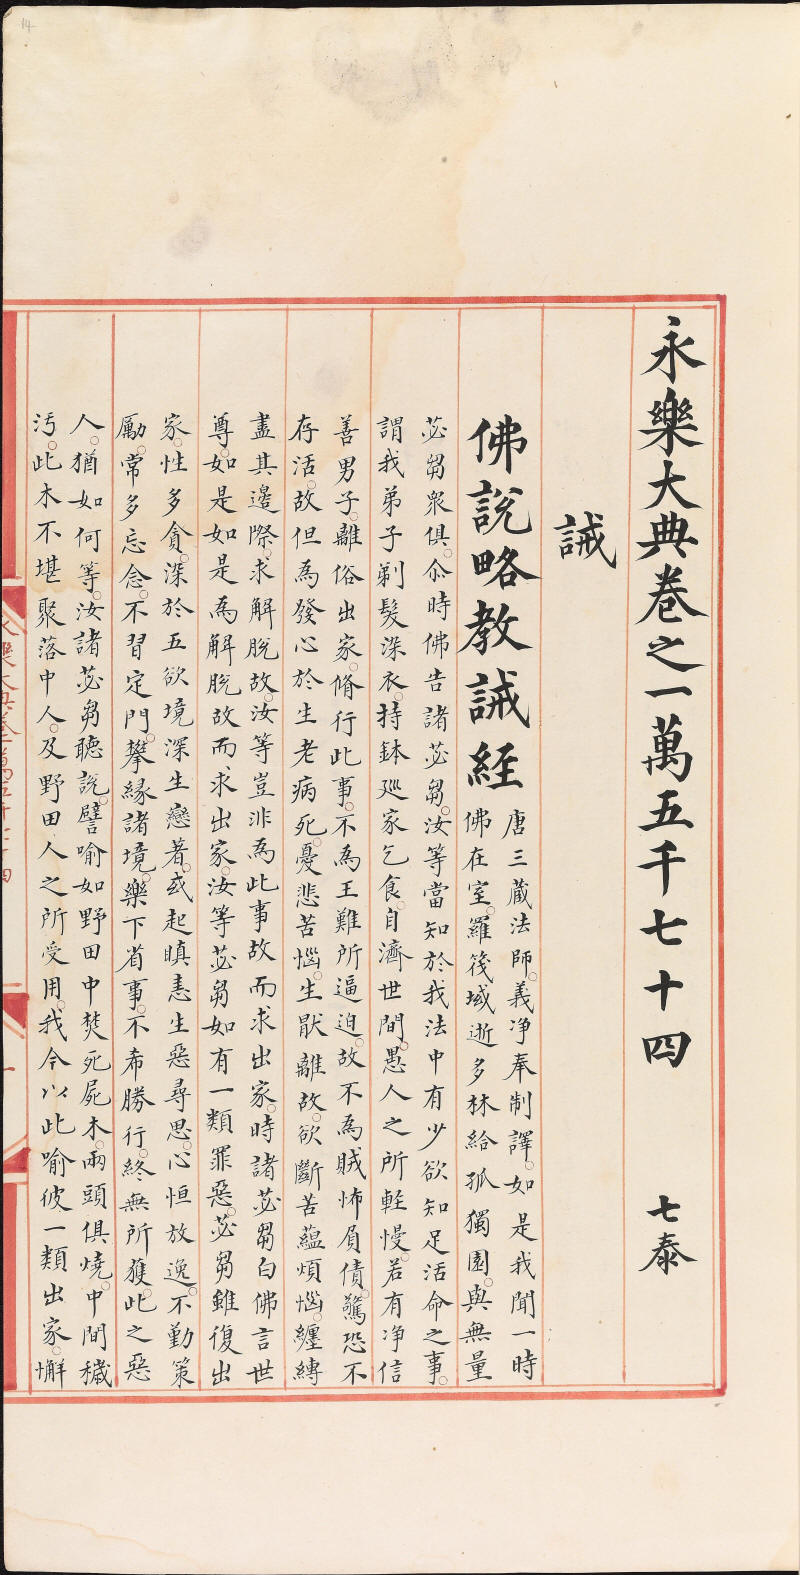 永樂大典卷之一萬五千七十四 七泰
誡
佛說略教誡經
唐三藏法師義净奉制譯如是我聞一時
佛在室羅筏城逝多林給孤獨園與無量
苾芻衆俱尒時佛告諸苾芻汝等當知於我法中有少欲知足活命之事
謂我弟子剃髮染衣持鉢廵家乞食自濟世間愚人之所輕慢若有净信
善男子離俗出家脩行此事不為王難所逼迫故不為賊怖負債驚恐不
存活故但為發心於生老病死憂悲苦惱生猒離故欲斷苦蘊煩惱纏縛
盡其邊際求解脫故汝等豈非為此事故而求出家時諸苾芻白佛言世
尊如是如是為解脫故而求出家汝等苾芻如有一類罪惡苾芻雖復出
家性多貪染於五欲境深生戀著或起瞋恚生惡尋思心恒放逸不勤策
勵常多忘念不習定門攀緣諸境樂下省事不希勝行終無所獲此之惡
人猶如何等汝諸苾芻聽說譬喻如野田中焚死屍木兩頭俱燒中間穢
汚此木不堪聚落中人及野田人之所受用我今以此喻彼一類出家懈
永樂大典卷一萬五千七十四
一
14